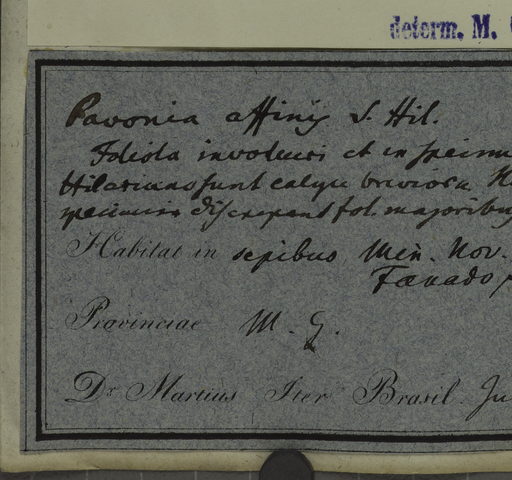 determ. M.
Pavonia affinis S. Hil.
Foliola involucri et in specimi
Hilariano sunt calyce breviora
specimina discrepant fol. majoribus
Habitat in sepibus Min. Nov.
Fanado
Provinciae M. G.
Dr. Martius Iter Brasil. Ju